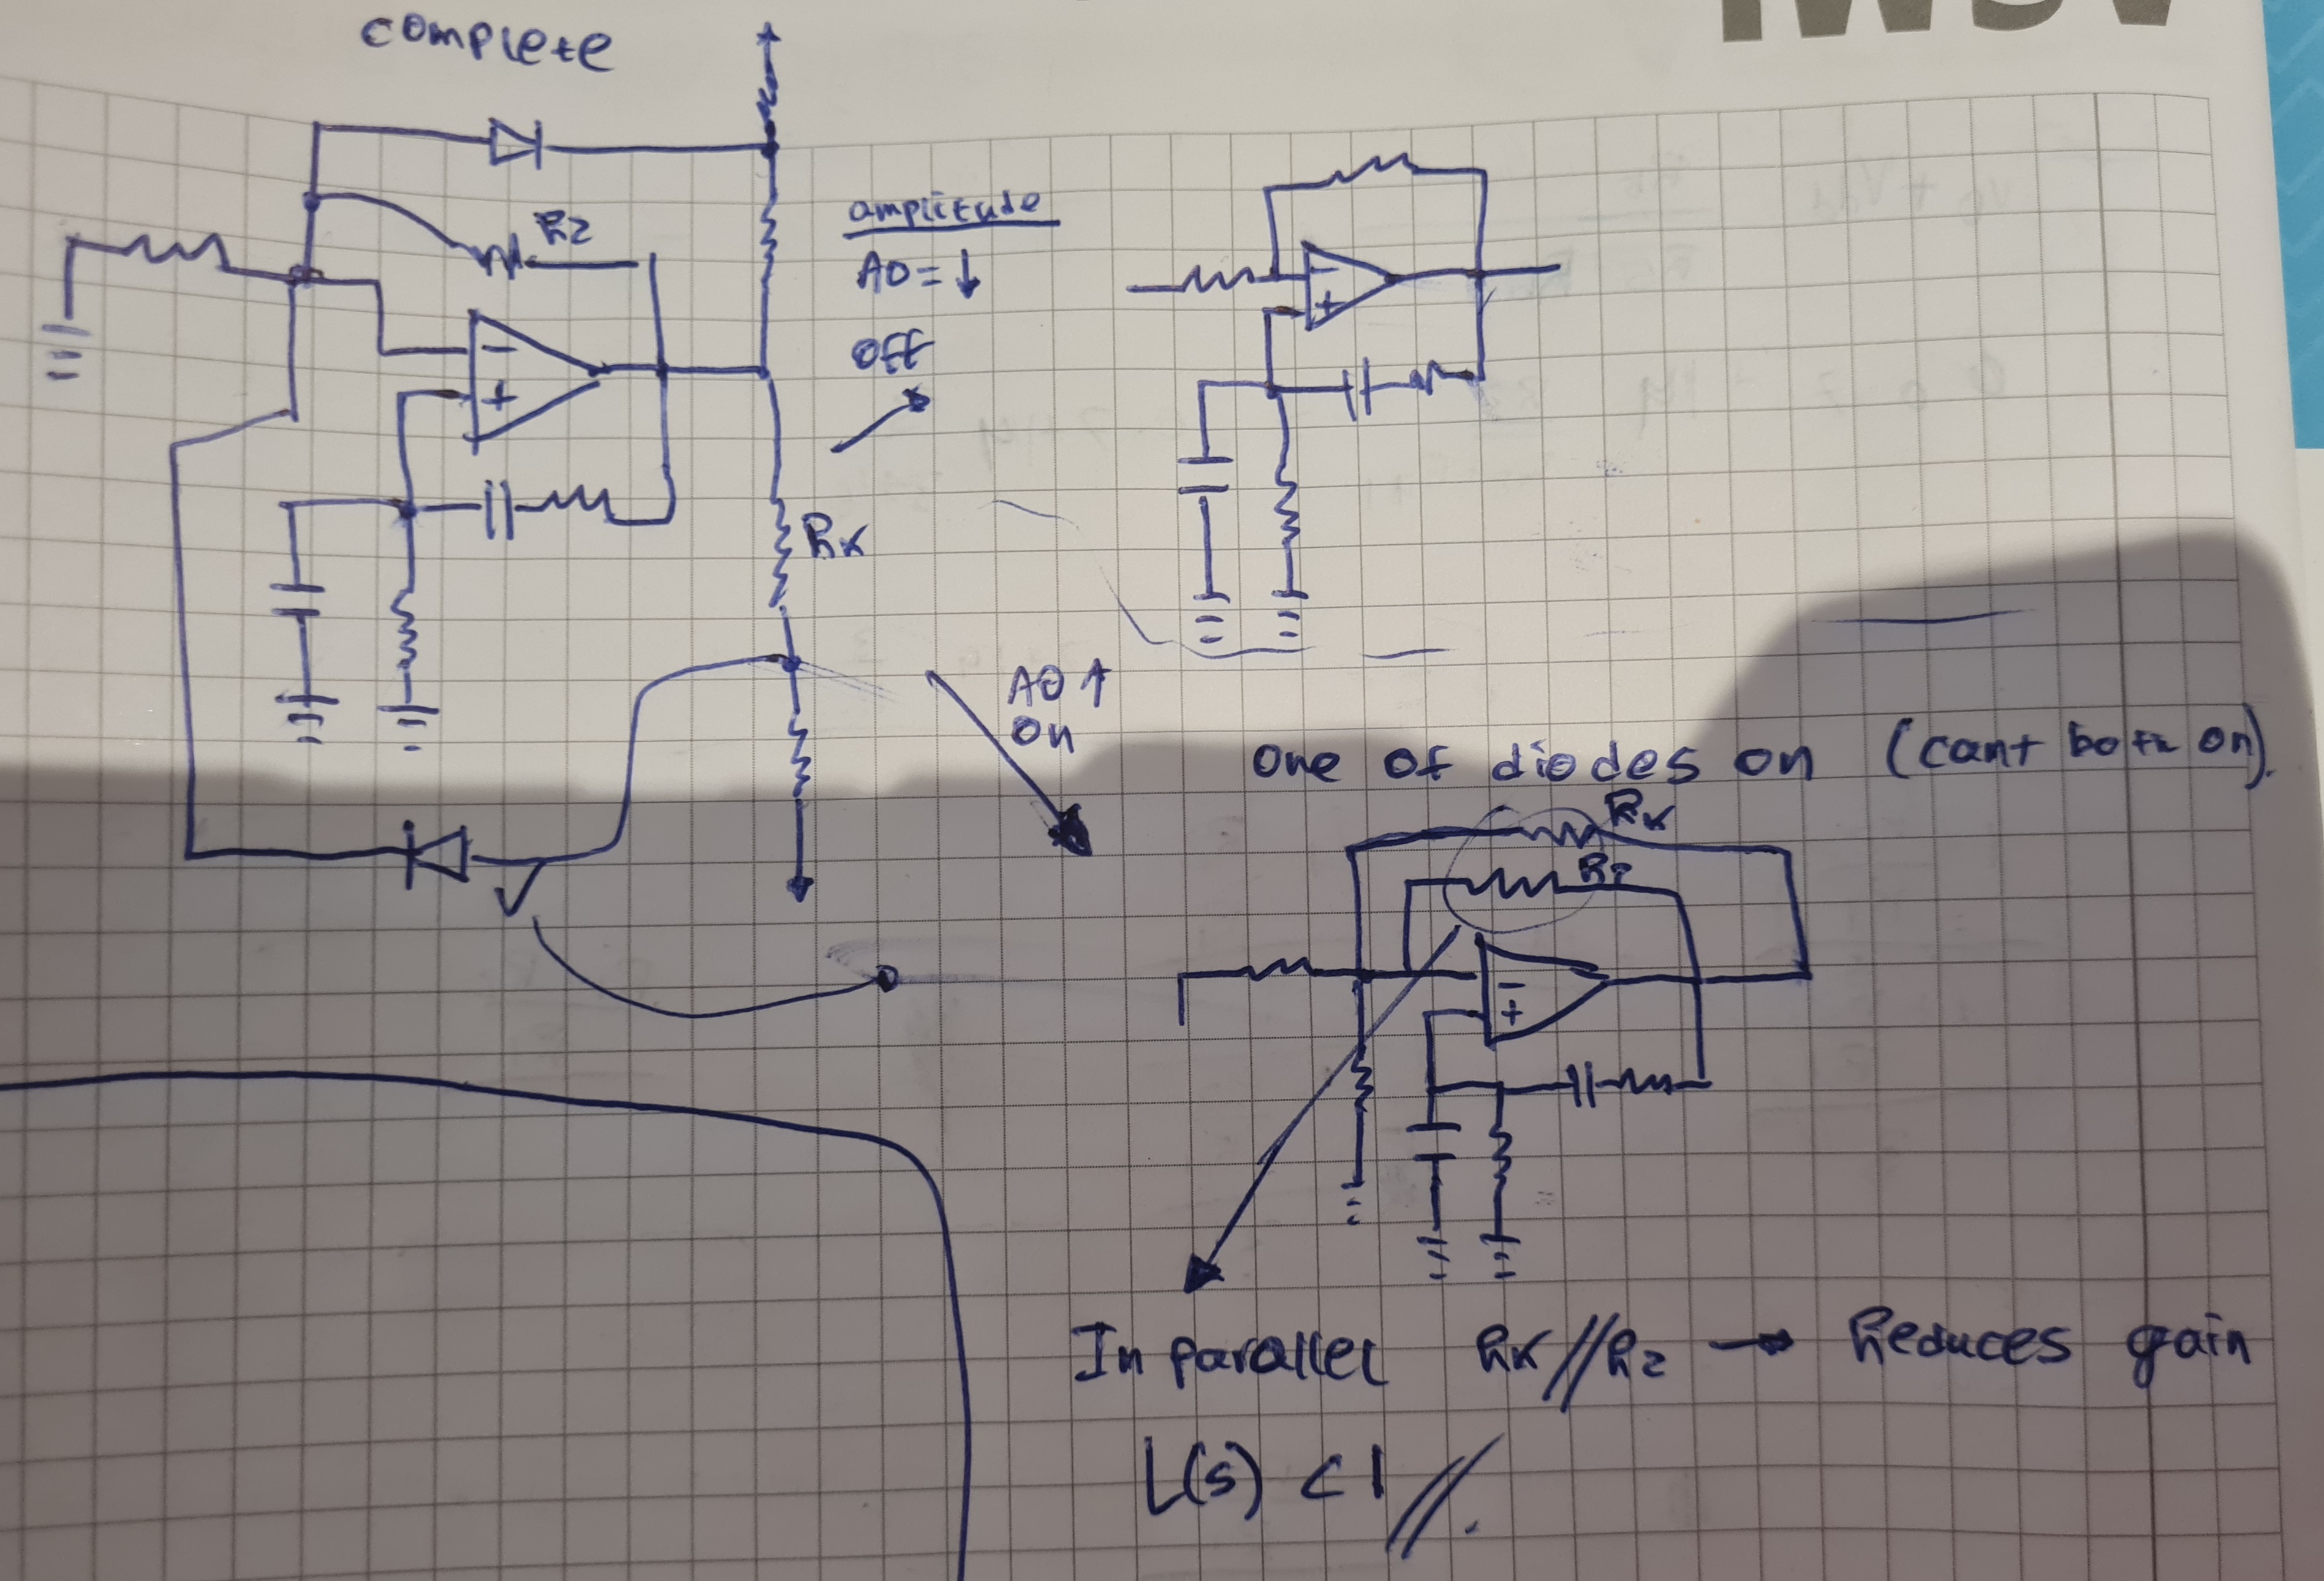 complete
R2
amplitude
A0 = ↓
Off
Rx
A0 ↑
On
One of diodes on (cant both on).
Rx
R2
In parallel Rx//R2 → Reduces gain
L(s) < 1 //.
-
+
-
+
-
+